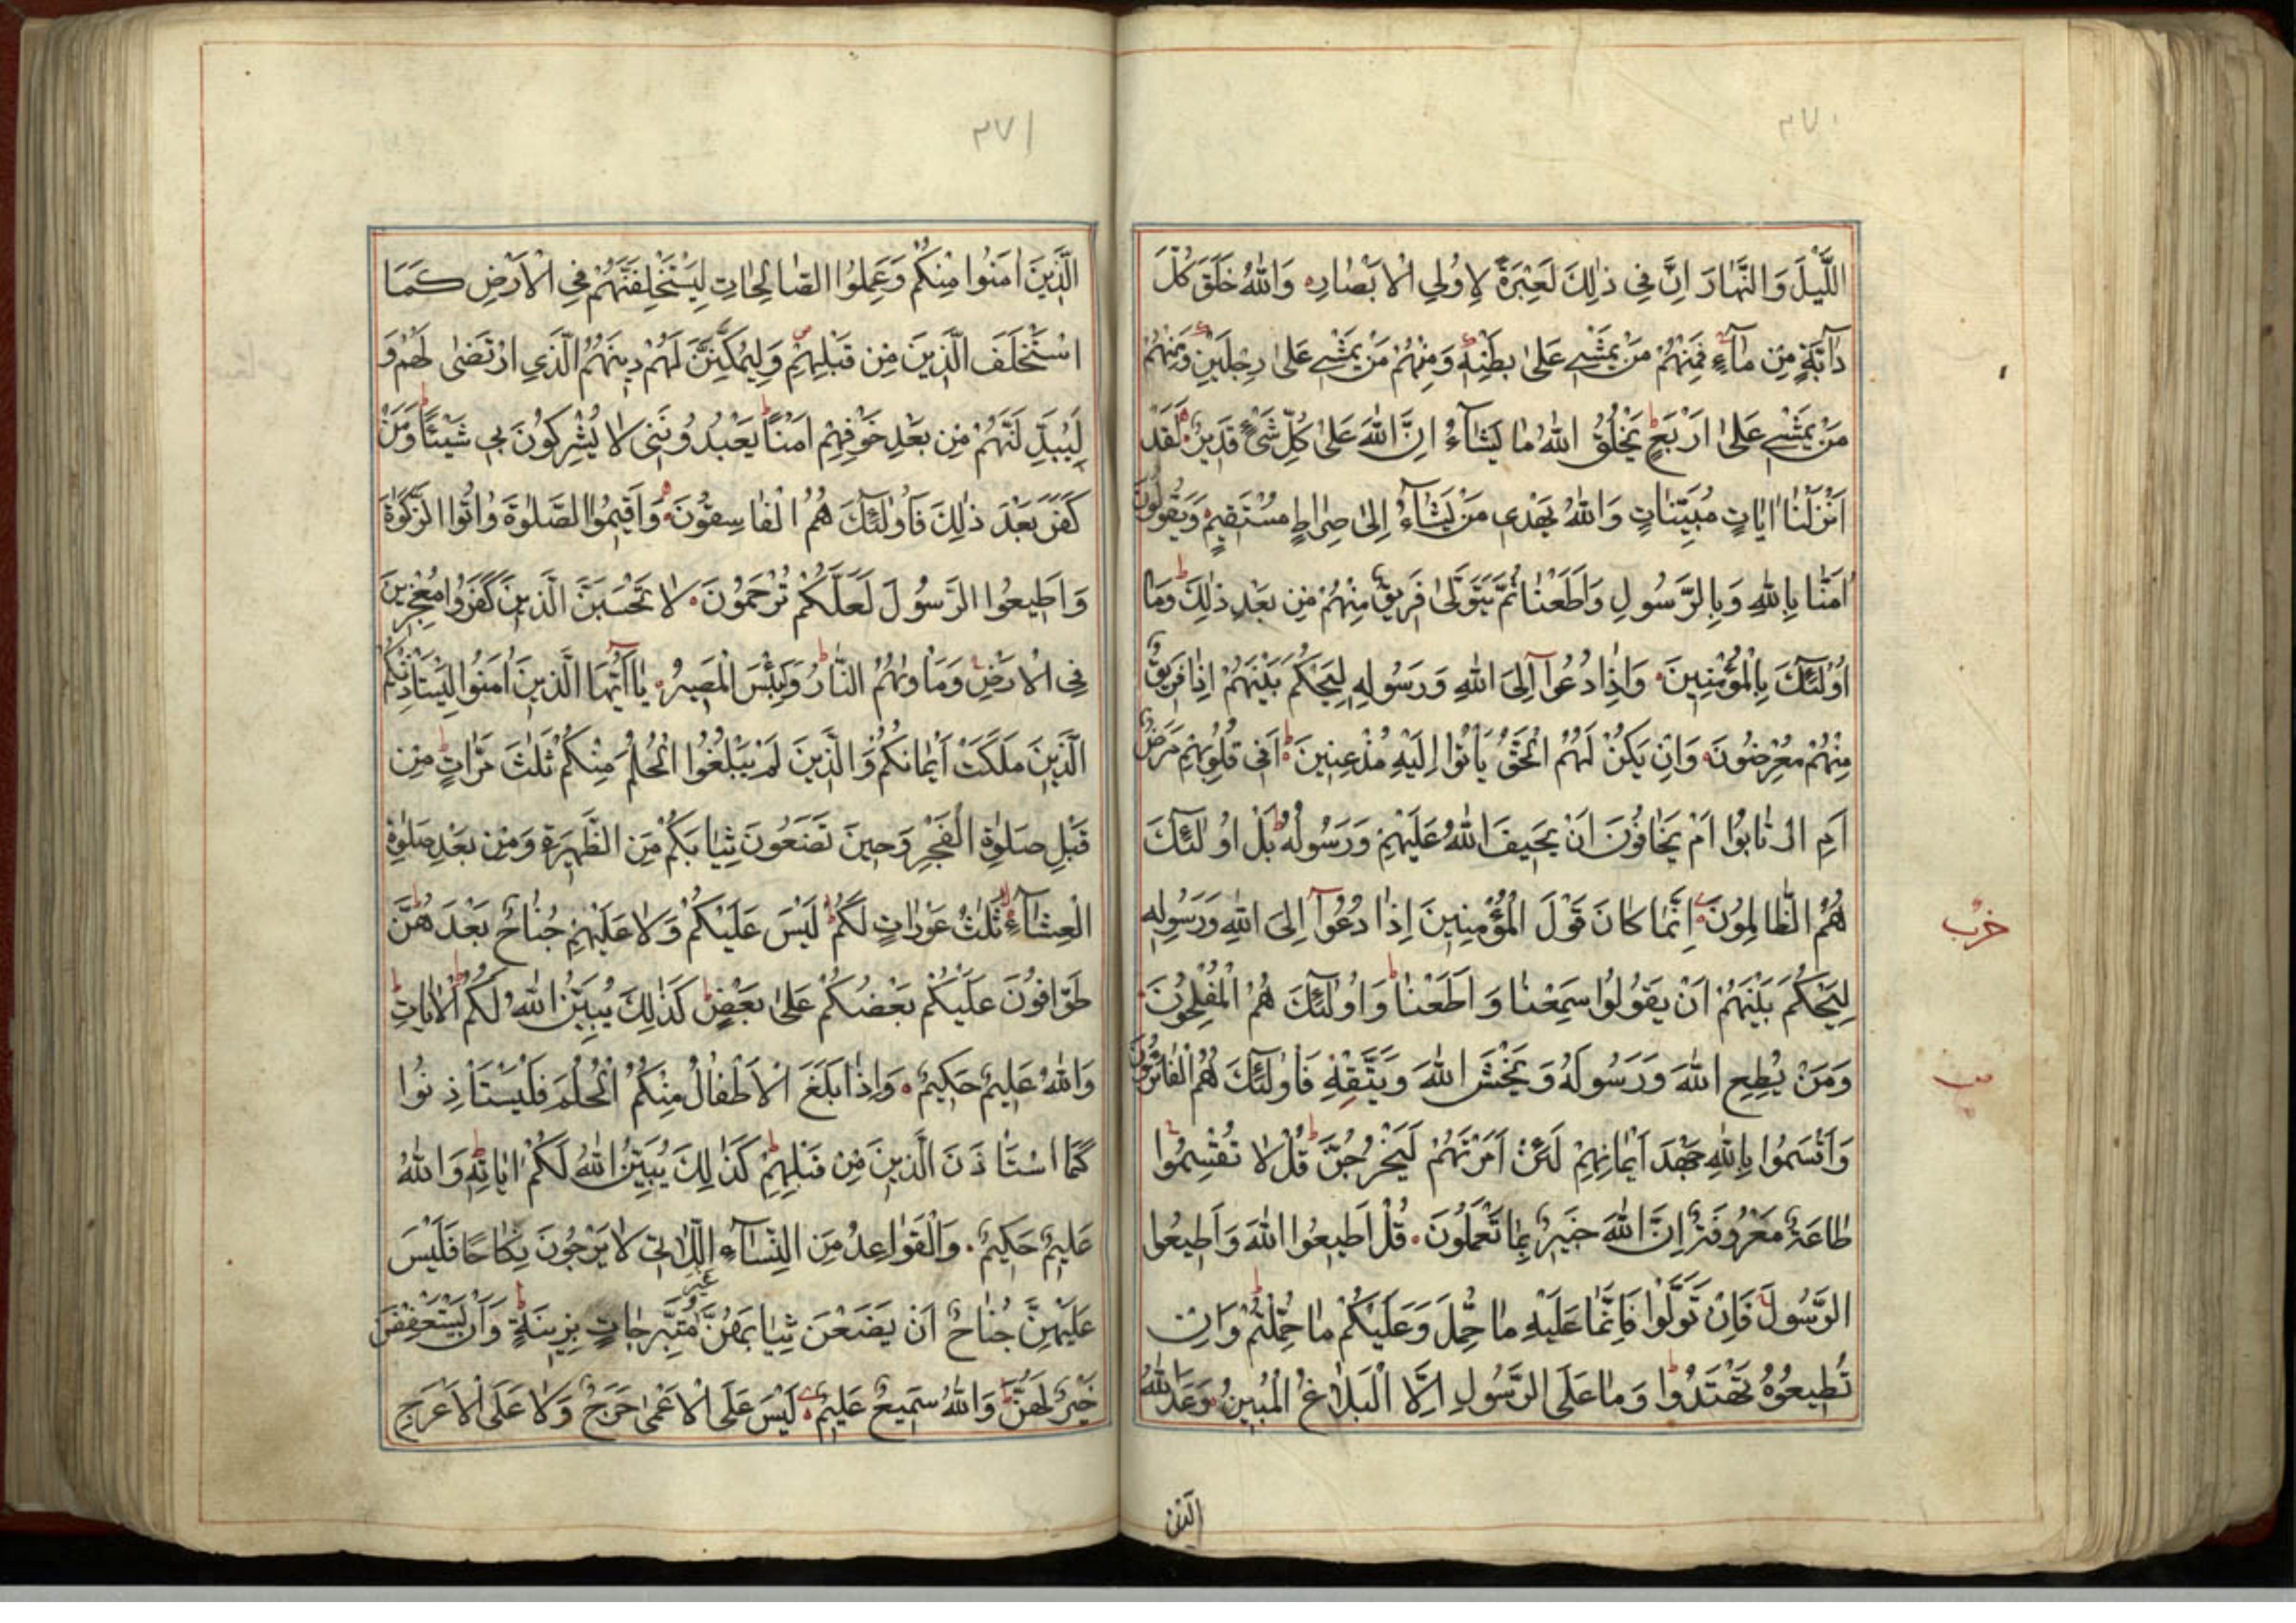 ٣٧٠
اللَّيْلَ وَالنَّهَارَ اِنَّ فِي ذٰلِكَ لَعِبْرَةً لِاُولِي الْاَبْصَارِ وَاللّٰهُ خَلَقَ كُلَّ
دَآبَّةٍ مِنْ مَآءٍ فَمِنْهُمْ مَنْ يَمْشِي عَلٰى بَطْنِهِ وَمِنْهُمْ مَنْ يَمْشِي عَلٰى رِجْلَيْنِ وَمِنْهُمْ
مَنْ يَمْشِي عَلٰى اَرْبَعٍ يَخْلُقُ اللّٰهُ مَا يَشَآءُ اِنَّ اللّٰهَ عَلٰى كُلِّ شَيْءٍ قَدِيرٌ لَقَدْ
اَنْزَلْنَا اٰيَاتٍ مُبَيِّنَاتٍ وَاللّٰهُ يَهْدِي مَنْ يَشَآءُ اِلٰى صِرَاطٍ مُسْتَقِيمٍ وَيَقُولُونَ
اٰمَنَّا بِاللّٰهِ وَبِالرَّسُولِ وَاَطَعْنَا ثُمَّ يَتَوَلّٰى فَرِيقٌ مِنْهُمْ مِنْ بَعْدِ ذٰلِكَ وَمَا
اُولٰئِكَ بِالْمُؤْمِنِينَ وَاِذَا دُعُوآ اِلَى اللّٰهِ وَرَسُولِهِ لِيَحْكُمَ بَيْنَهُمْ اِذَا فَرِيقٌ
مِنْهُمْ مُعْرِضُونَ وَاِنْ يَكُنْ لَهُمُ الْحَقُّ يَأْتُوا اِلَيْهِ مُذْعِنِينَ اَفِي قُلُوبِهِمْ مَرَضٌ
اَمِ ارْتَابُوا اَمْ يَخَافُونَ اَنْ يَحِيفَ اللّٰهُ عَلَيْهِمْ وَرَسُولُهُ بَلْ اُولٰئِكَ
هُمُ الظَّالِمُونَ اِنَّمَا كَانَ قَوْلَ الْمُؤْمِنِينَ اِذَا دُعُوآ اِلَى اللّٰهِ وَرَسُولِهِ
حزب
لِيَحْكُمَ بَيْنَهُمْ اَنْ يَقُولُوا سَمِعْنَا وَاَطَعْنَا وَاُولٰئِكَ هُمُ الْمُفْلِحُونَ
وَمَنْ يُطِعِ اللّٰهَ وَرَسُولَهُ وَيَخْشَ اللّٰهَ وَيَتَّقْهِ فَاُولٰئِكَ هُمُ الْفَائِزُونَ
وَاَقْسَمُوا بِاللّٰهِ جَهْدَ اَيْمَانِهِمْ لَئِنْ اَمَرْتَهُمْ لَيَخْرُجُنَّ قُلْ لَا تُقْسِمُوا
طَاعَةٌ مَعْرُوفَةٌ اِنَّ اللّٰهَ خَبِيرٌ بِمَا تَعْمَلُونَ قُلْ اَطِيعُوا اللّٰهَ وَاَطِيعُوا
الرَّسُولَ فَاِنْ تَوَلَّوْا فَاِنَّمَا عَلَيْهِ مَا حُمِّلَ وَعَلَيْكُمْ مَا حُمِّلْتُمْ وَاِنْ
تُطِيعُوهُ تَهْتَدُوا وَمَا عَلَى الرَّسُولِ اِلَّا الْبَلَاغُ الْمُبِينُ وَعَدَ اللّٰهُ
الذين
٣٧١
الَّذِينَ اٰمَنُوا مِنْكُمْ وَعَمِلُوا الصَّالِحَاتِ لَيَسْتَخْلِفَنَّهُمْ فِي الْاَرْضِ كَمَا
اسْتَخْلَفَ الَّذِينَ مِنْ قَبْلِهِمْ وَلَيُمَكِّنَنَّ لَهُمْ دِينَهُمُ الَّذِي ارْتَضٰى لَهُمْ وَ
لَيُبَدِّلَنَّهُمْ مِنْ بَعْدِ خَوْفِهِمْ اَمْنًا يَعْبُدُونَنِي لَا يُشْرِكُونَ بِي شَيْئًا وَمَنْ
كَفَرَ بَعْدَ ذٰلِكَ فَاُولٰئِكَ هُمُ الْفَاسِقُونَ وَاَقِيمُوا الصَّلٰوةَ وَاٰتُوا الزَّكٰوةَ
وَاَطِيعُوا الرَّسُولَ لَعَلَّكُمْ تُرْحَمُونَ لَا تَحْسَبَنَّ الَّذِينَ كَفَرُوا مُعْجِزِينَ
فِي الْاَرْضِ وَمَأْوٰيهُمُ النَّارُ وَلَبِئْسَ الْمَصِيرُ يَا اَيُّهَا الَّذِينَ اٰمَنُوا لِيَسْتَأْذِنْكُمُ
الَّذِينَ مَلَكَتْ اَيْمَانُكُمْ وَالَّذِينَ لَمْ يَبْلُغُوا الْحُلُمَ مِنْكُمْ ثَلٰثَ مَرَّاتٍ مِنْ
قَبْلِ صَلٰوةِ الْفَجْرِ وَحِينَ تَضَعُونَ ثِيَابَكُمْ مِنَ الظَّهِيرَةِ وَمِنْ بَعْدِ صَلٰوةِ
الْعِشَآءِ ثَلٰثُ عَوْرَاتٍ لَكُمْ لَيْسَ عَلَيْكُمْ وَلَا عَلَيْهِمْ جُنَاحٌ بَعْدَهُنَّ
طَوَّافُونَ عَلَيْكُمْ بَعْضُكُمْ عَلٰى بَعْضٍ كَذٰلِكَ يُبَيِّنُ اللّٰهُ لَكُمُ الْاٰيَاتِ
وَاللّٰهُ عَلِيمٌ حَكِيمٌ وَاِذَا بَلَغَ الْاَطْفَالُ مِنْكُمُ الْحُلُمَ فَلْيَسْتَأْذِنُوا
كَمَا اسْتَأْذَنَ الَّذِينَ مِنْ قَبْلِهِمْ كَذٰلِكَ يُبَيِّنُ اللّٰهُ لَكُمْ اٰيَاتِهِ وَاللّٰهُ
عَلِيمٌ حَكِيمٌ وَالْقَوَاعِدُ مِنَ النِّسَآءِ اللَّاتِي لَا يَرْجُونَ نِكَاحًا فَلَيْسَ
عَلَيْهِنَّ جُنَاحٌ اَنْ يَضَعْنَ ثِيَابَهُنَّ غَيْرَ مُتَبَرِّجَاتٍ بِزِينَةٍ وَاَنْ يَسْتَعْفِفْنَ
خَيْرٌ لَهُنَّ وَاللّٰهُ سَمِيعٌ عَلِيمٌ لَيْسَ عَلَى الْاَعْمٰى حَرَجٌ وَلَا عَلَى الْاَعْرَجِ